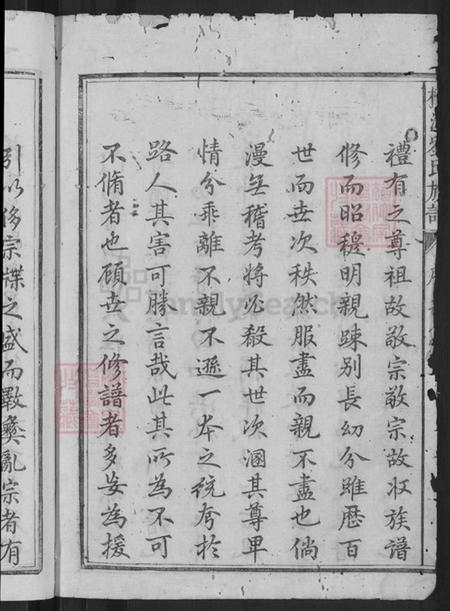 禮有之尊祖故敬宗敬宗故收族譜
修而昭穆明親踈別長幼分雖歷百
世而世次秩然服盡而親不盡也倘
漫無稽考將必殺其世次溷其尊卑
情分乖離不親不遜一本之統夸於
路人其害可勝言哉此其所為不可
不脩者也顧世之修譜者多妄為援
引以侈宗牒之盛而斁彝亂宗者有